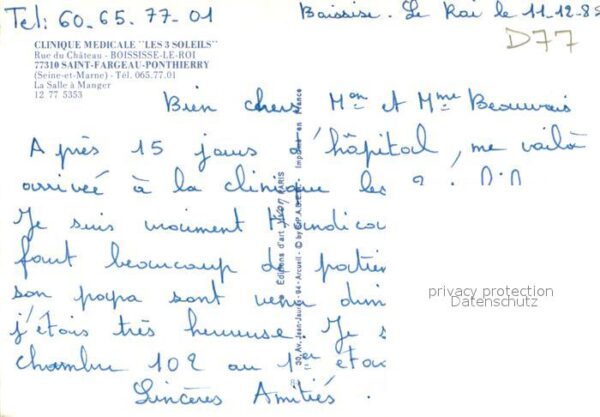 Tel: 60.65.77-01
Boissise. Le Roi le 11-12-85
D77
CLINIQUE MEDICALE "LES 3 SOLEILS"
Rue du Château - BOISSISSE-LE-ROI
77310 SAINT-FARGEAU-PONTHIERRY
(Seine-et-Marne) - Tél. 065.77.01
La Salle à Manger
12 77 5353
Bien chers Mon et Mme Beauvais
Après 15 jours d'hôpital, me voilà
arrivée à la clinique les
Je suis vraiment Handica
faut beaucoup de patien
son papa sont venu dim
j'étais très heureuse. Je s
chambre 102 au 1er étag
Sincères Amitiés.
Editions d'art PARIS
30, Av. Jean-Jaurès-94-Arcueil - © by Imprimé en France
privacy protection
Datenschutz